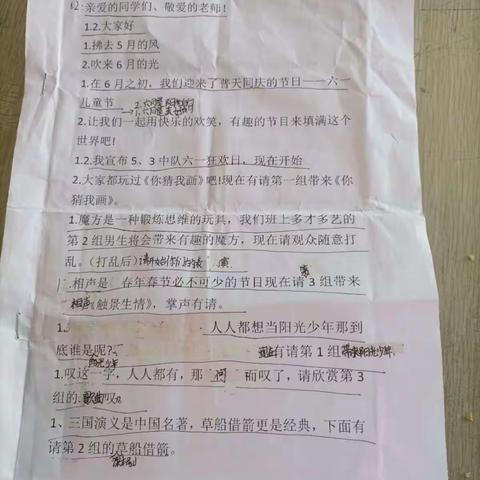 2:亲爱的同学们、敬爱的老师!
1.2.大家好
1.拂去5月的风
2.吹来6月的光
1.在6月之初，我们迎来了普天同庆的节日——六一
儿童节
2.让我们一起用快乐的欢笑，有趣的节目来填满这个
世界吧!
1.2.我宣布5、3中队六一狂欢日，现在开始
2.大家都玩过《你猜我画》吧!现在有请第一组带来《你
猜我画》。
1.魔方是一种锻炼思维的玩具，我们班上多才多艺的
第2组男生将会带来有趣的魔方，现在请观众随意打
乱。(打乱后)请开始你们的表演
1.相声是 春年春节必不可少的节目现在请第3组带来
相声《触景生情》，掌声有请。
1. 人人都想当阳光少年那到
底谁是呢? 有请第1组带来阳光少年
1.叹这一字，人人都有，那问而叹了，请欣赏第3
组的歌曲叹
1、三国演义是中国名著，草船借箭更是经典，下面有
请第2组的草船借箭。